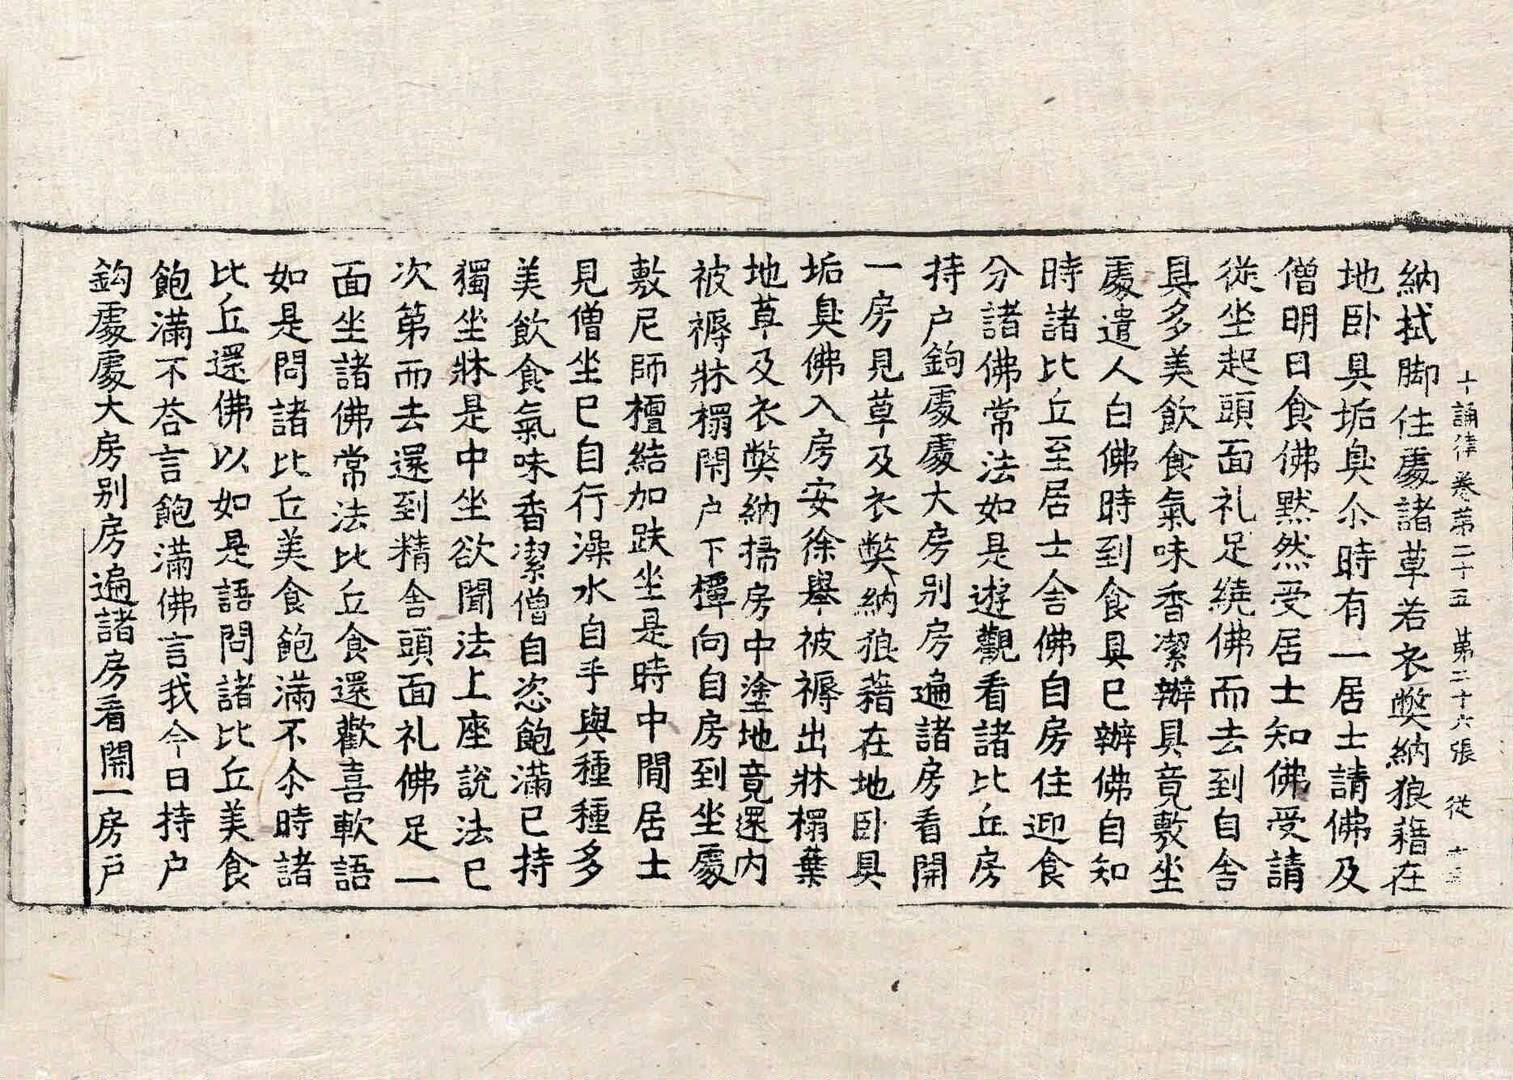 十誦律卷苐二十五 苐二十六張 従
納拭脚住處諸草若衣弊納狼藉在
地卧具垢臭尒時有一居士請佛及
僧明日食佛黙然受居士知佛受請
従坐起頭面礼足繞佛而去到自舎
具多美飲食氣味香潔辦具竟敷坐
處遣人白佛時到食具已辦佛自知
時諸比丘至居士舎佛自房住迎食
分諸佛常法如是遊觀看諸比丘房
持户鉤處處大房別房遍諸房看開
一房見草及衣弊納狼藉在地卧具
垢臭佛入房安徐舉被褥出牀榻葉
地草及衣弊納掃房中塗地竟還内
被褥牀榻閇户下橝向自房到坐處
敷尼師檀結加趺坐是時中間居士
見僧坐已自行澡水自手與種種多
美飲食氣味香潔僧自恣飽滿已持
獨坐牀是中坐欲聞法上座說法已
次第而去還到精舎頭面礼佛足一
面坐諸佛常法比丘食還歡喜軟語
如是問諸比丘美食飽滿不尒時諸
比丘還佛以如是語問諸比丘美食
飽滿不荅言飽滿佛言我今日持户
鉤處處大房別房遍諸房看開一房戸